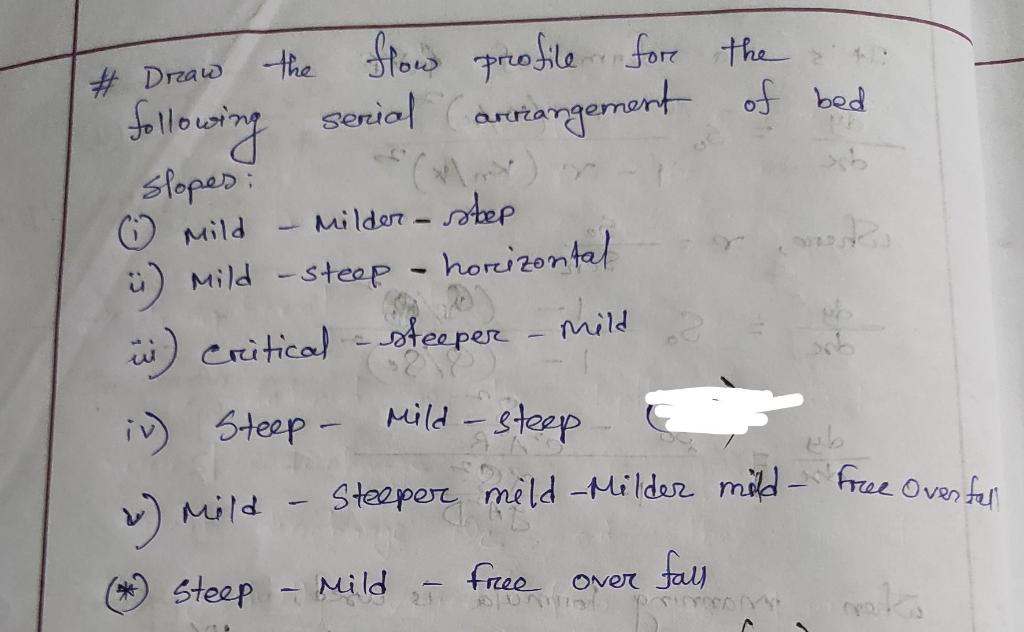 # Draw the flow profile for the
following serial arrangement of bed
slopes:
(i) Mild - Milder - steep
ii) Mild - steep - horizontal
iii) Critical - steeper - Mild
iv) Steep - Mild - steep
v) Mild - Steeper mild - Milder mild - free Over fall
(*) Steep - Mild - free over fall